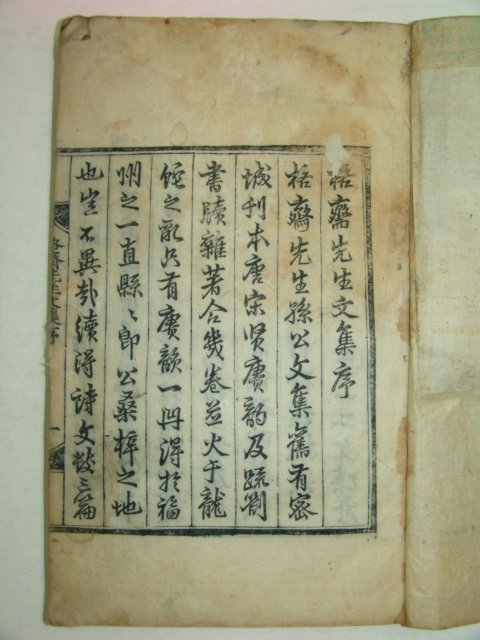 格齋先生文集序
格齋先生孫公文集舊有密
城刊本唐宋賢賡韵及疏劄
書牘雜著合幾卷並火于龍
蛇之乱只有賡韻一冊得於福
州之一直縣〻即公桑梓之地
也豈不異哉續得詩文数三篇
格齋先生文集序
一